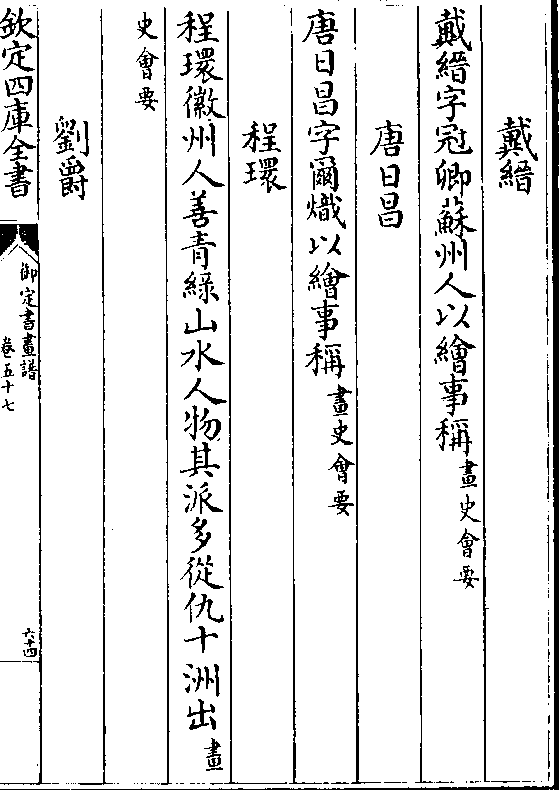 戴縉
戴縉字冠卿蘇州人以繪事稱畫史會要
唐日昌
唐日昌字爾熾以繪事稱畫史會要
程環
程環徽州人善青綠山水人物其派多從仇十洲出畫
史會要
劉爵
欽定四庫全書
御定書畫譜
卷五十七
六十四